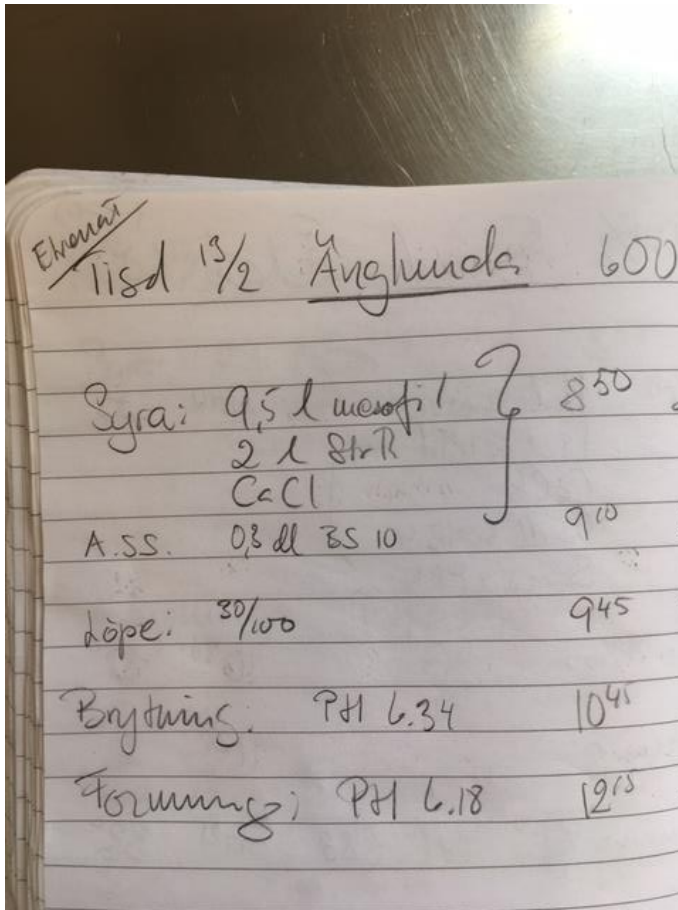 Tisd 13/2 Änglunda 600
Syra: 9,5 l mesofil 8 50
2 l StrR
CaCl
A.SS. 0,3 dl BS 10 9 10
Löpe: 30/100 9 45
Brytning. PH 6.34 10 45
Formning; PH 6.18 12 15